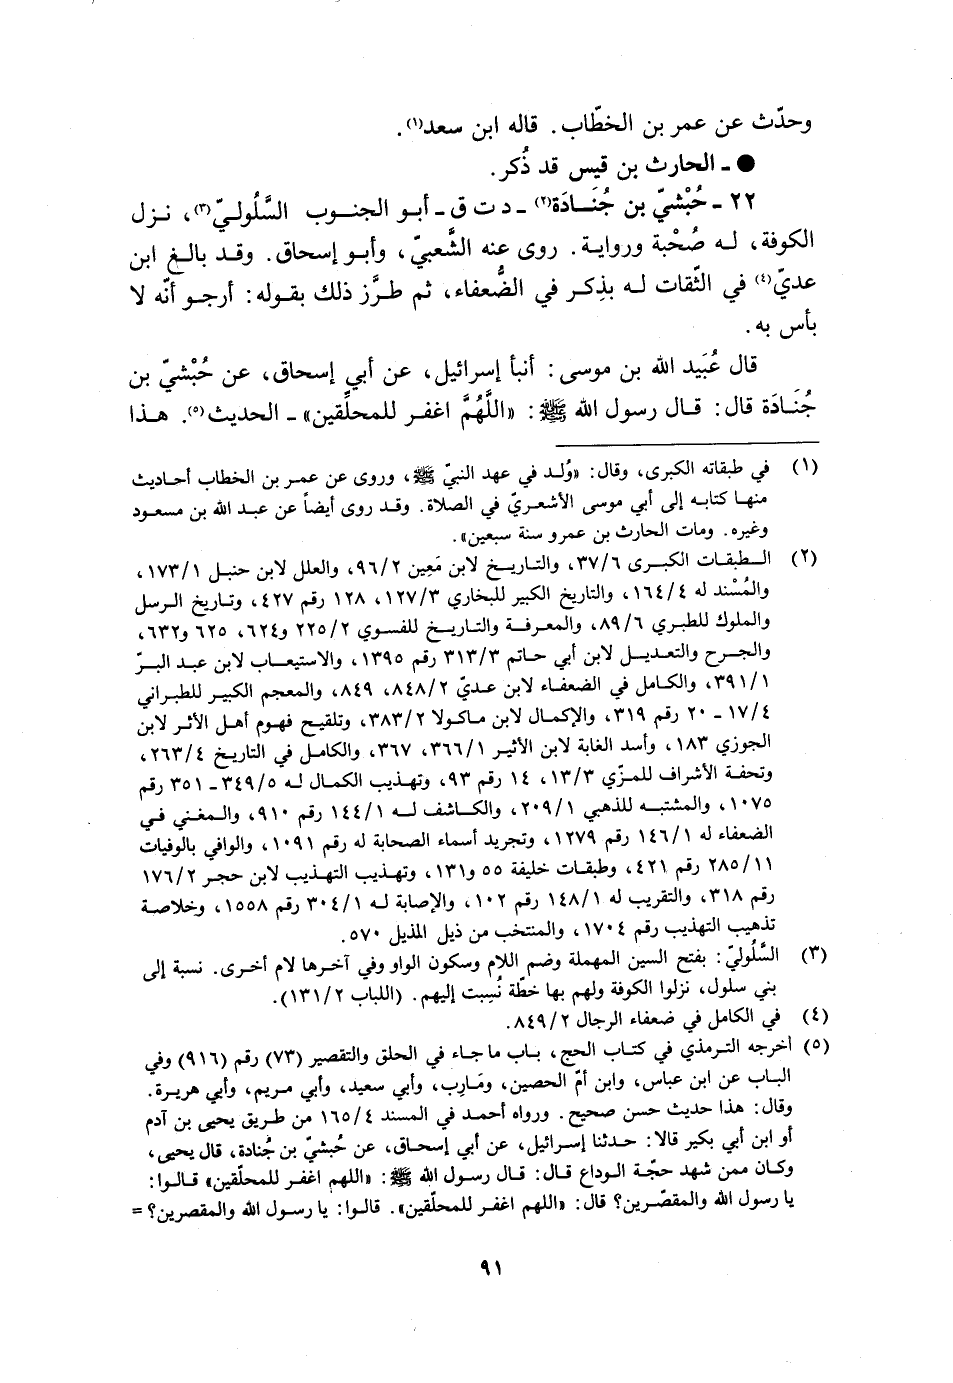 وحدّث عن عمر بن الخطّاب. قاله ابن سعد(١).
● ـ الحارث بن قيس قد ذُكر.
٢٢ ـ حُبْشيّ بن جُنَادَة(٢) ـ د ت ق ـ أبو الجنوب السَّلُوليّ(٣)، نزل
الكوفة، له صُحْبة ورواية. روى عنه الشَّعبيّ، وأبو إسحاق. وقد بالغ ابن
عديّ(٤) في الثّقات له بذِكر في الضُّعفاء، ثم طرَّز ذلك بقوله: أرجو أنّه لا
بأس به.
قال عُبَيد الله بن موسى: أنبأ إسرائيل، عن أبي إسحاق، عن حُبْشيّ بن
جُنَادَة قال: قال رسول الله ﷺ: «اللَّهُمَّ اغفر للمحلِّقين» ـ الحديث(٥). هذا
(١) في طبقاته الكبرى، وقال: «وُلد في عهد النبيّ ﷺ، وروى عن عمر بن الخطاب أحاديث
منها كتابه إلى أبي موسى الأشعريّ في الصلاة. وقد روى أيضاً عن عبد الله بن مسعود
وغيره. ومات الحارث بن عمرو سنة سبعين».
(٢) الطبقات الكبرى ٣٧/٦، والتاريخ لابن مَعِين ٩٦/٢، والعلل لابن حنبل ١٧٣/١،
والمُسْند له ١٦٤/٤، والتاريخ الكبير للبخاري ١٢٧/٣، ١٢٨ رقم ٤٢٧، وتاريخ الرسل
والملوك للطبري ٨٩/٦، والمعرفة والتاريخ للفسوي ٢٢٥/٢ و٦٢٤، ٦٢٥ و٦٣٢،
والجرح والتعديل لابن أبي حاتم ٣١٣/٣ رقم ١٣٩٥، والاستيعاب لابن عبد البرّ
٣٩١/١، والكامل في الضعفاء لابن عديّ ٨٤٨/٢، ٨٤٩، والمعجم الكبير للطبراني
١٧/٤ ـ ٢٠ رقم ٣١٩، والإكمال لابن ماكولا ٣٨٣/٢، وتلقيح فهوم أهل الأثر لابن
الجوزي ١٨٣، وأسد الغابة لابن الأثير ٣٦٦/١، ٣٦٧، والكامل في التاريخ ٢٦٣/٤،
وتحفة الأشراف للمزّي ١٣/٣، ١٤ رقم ٩٣، وتهذيب الكمال له ٣٤٩/٥ ـ ٣٥١ رقم
١٠٧٥، والمشتبه للذهبي ٢٠٩/١، والكاشف له ١٤٤/١ رقم ٩١٠، والمغني في
الضعفاء له ١٤٦/١ رقم ١٢٧٩، وتجريد أسماء الصحابة له رقم ١٠٩١، والوافي بالوفيات
٢٨٥/١١ رقم ٤٢١، وطبقات خليفة ٥٥ و١٣١، وتهذيب التهذيب لابن حجر ١٧٦/٢
رقم ٣١٨، والتقريب له ١٤٨/١ رقم ١٠٢، والإصابة له ٣٠٤/١ رقم ١٥٥٨، وخلاصة
تذهيب التهذيب رقم ١٧٠٤، والمنتخب من ذيل المذيل ٥٧٠.
(٣) السَّلُوليّ: بفتح السين المهملة وضم اللام وسكون الواو وفي آخرها لام أخرى. نسبة إلى
بني سلول، نزلوا الكوفة ولهم بها خطّة نُسِبت إليهم. (اللباب ١٣١/٢).
(٤) في الكامل في ضعفاء الرجال ٨٤٩/٢.
(٥) أخرجه الترمذي في كتاب الحج، باب ما جاء في الحلق والتقصير (٧٣) رقم (٩١٦) وفي
الباب عن ابن عباس، وابن أمّ الحصين، ومَارِب، وأبي سعيد، وأبي مريم، وأبي هريرة.
وقال: هذا حديث حسن صحيح. ورواه أحمد في المسند ١٦٥/٤ من طريق يحيى بن آدم
أو ابن أبي بكير قالا: حدثنا إسرائيل، عن أبي إسحاق، عن حُبشيّ بن جُنادة، قال يحيى،
وكان ممن شهد حجّة الوداع قال: قال رسول الله ﷺ: «اللهم اغفر للمحلّقين» قالوا:
يا رسول الله والمقصّرين؟ قال: «اللهم اغفر للمحلّقين». قالوا: يا رسول الله والمقصرين؟ =
٩١